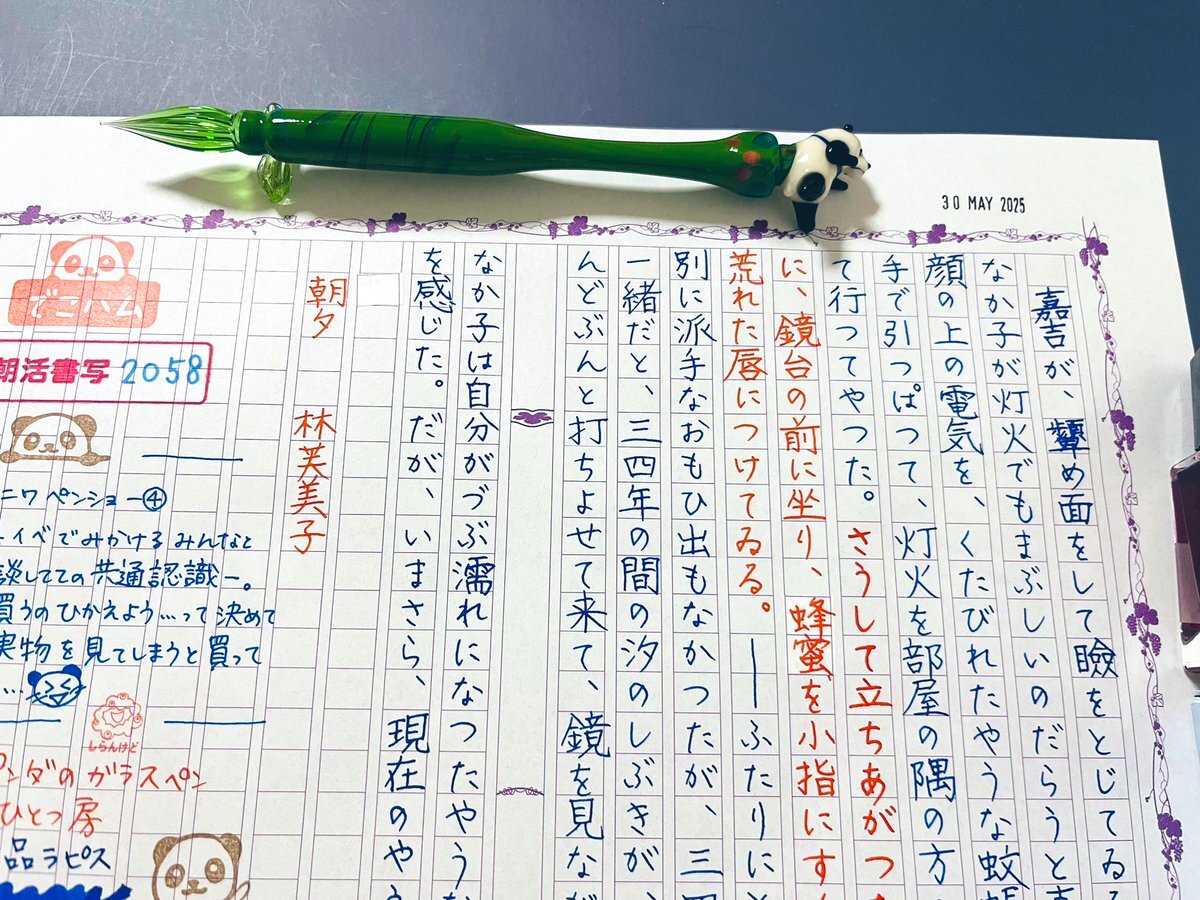 30 MAY 2025
嘉吉が、顰め面をして瞼をとじてゐる
なか子が灯火でもまぶしいのだらうと
顔の上の電気を、くたびれたやうな蚊
手で引つぱつて、灯火を部屋の隅の方
て行つてやつた。さうして立ちあがつ
に、鏡台の前に坐り、蜂蜜を小指にす
荒れた唇につけてゐる。――ふたりに
別に派手なおもひ出もなかつたが、三
一緒だと、三四年の間の汐のしぶきが、
んどぶんと打ちよせて来て、鏡を見なが
なか子は自分がづぶ濡れになつたやうな
を感じた。だが、いまさら、現在のや
朝夕 林芙美子
でこハム
朝活書写 2058
ニワペンショー④
イベでみかけるみんなと
談してての共通認識ー。
買うのひかえよう…って決めて
実物を見てしまうと買って
…
しらんけど
ンダのガラスペン
ひとつ房
品ラピス